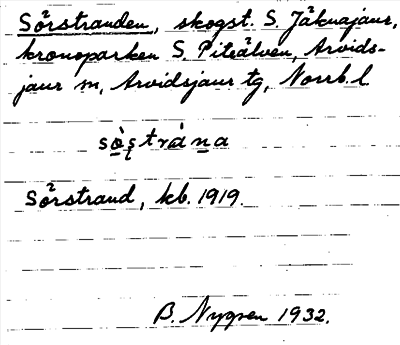 Sörstranden, skogst. S. Jäknajaur,
kronoparken S. Piteälven, Arvids-
jaur sn, Arvidsjaur tg, Norrb. l.
Sörstrand, kb. 1919.
B. Nygren 1932.